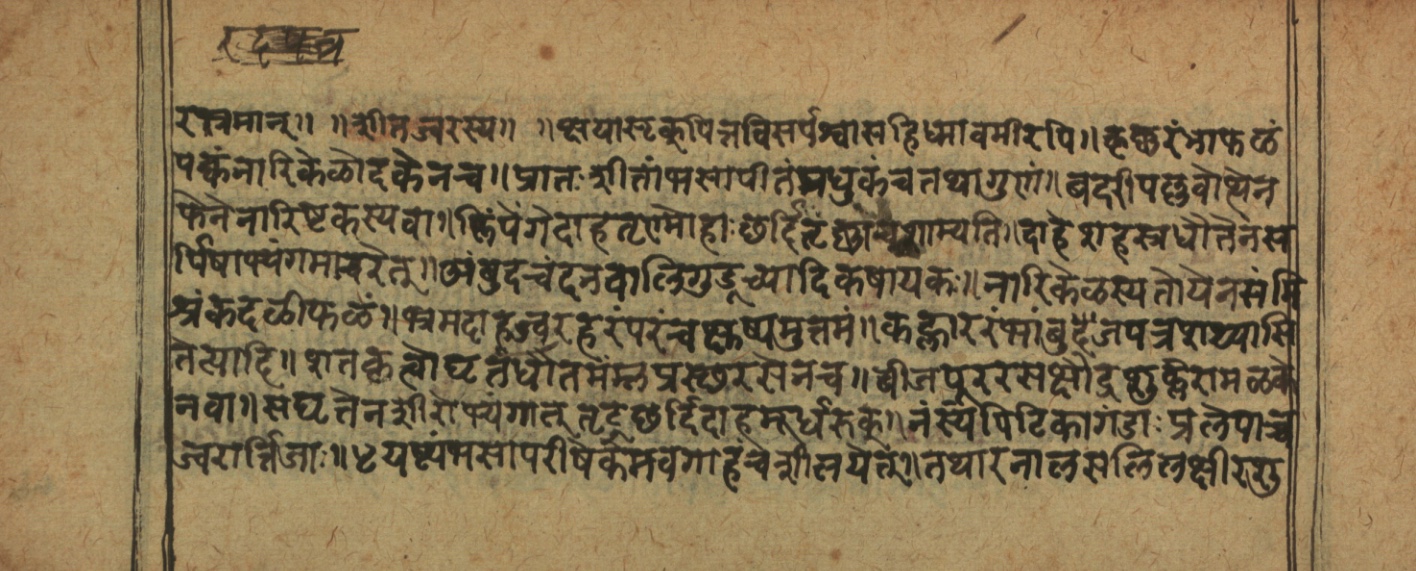 रक्तमान्॥ ॥शीतज्वरस्य॥ ॥क्षयास्टकुपित्तविसर्पश्वासहिध्मावमीरपि॥ कृछ्ररंभाफळं
पक्वंनारिकेळोदकेनच॥ प्रातःशीतांभसापीतंमधुकंचतथागुणं॥ बदरीपल्लवोत्थेन
फेनेनारिष्टकस्यवा॥ लिप्तेंगेदाहतृण्मोहाः छर्दिस्तृ शाम्यति॥ दाहेशहस्रधौतेनस
र्पिषाभ्यंगमाचरेत्॥ अंबुदचंदनवालिगुडूच्यादिकषायकः॥ नारिकेळस्यतोयेनसंमि
श्रंकदळीफळं॥ भ्रमदाहज्वरहरंपरंच मुत्तमं॥ कह्लाररंभांबु जपत्रशय्यासि
तेत्यादि॥ शतकृत्वोघृतंधौतमम्लप्रस्थरसेनच॥ बीजपूररसक्षौद्र शुक्तैरामळके
नवा॥ सघृतेनशीरोभ्यंगात् तृट्छर्दिदाहमूर्धरुक्॥ नंस्येपिटिकागंडाः प्रलेपाच्च
ज्वरार्त्तिजाः॥ ४ यष्ट्यंभसापरीषेकमवगाहंचशीलयेत्॥ तथारनालसलिलक्षीरशु